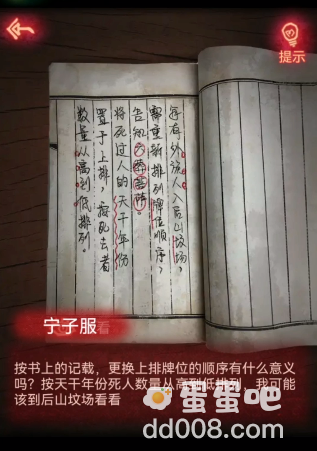 提示
每有外流人入后山坟场，
需重新排列牌位顺序，
告知六路菩萨。
将死过人的天干年份
置于上排，按死去者
数量从高到低排列。
宁子服
看
按书上的记载，更换上排牌位的顺序有什么意义
吗？按天干年份死人数量从高到低排列，我可能
该到后山坟场看看
蛋蛋吧
dd008.com